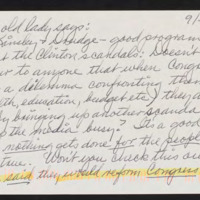 old lady says: 9/
Lindsey + Dodge - good program
t the Clinton scandals. Doesn't
r to anyone that when Congr
a dilemma confronting th
th, education, budget etc) they a
y bringing up another scanda
the media busy? Its a good
nothing gets done for the people
true. Won't you check this ou
said they would reform Congres